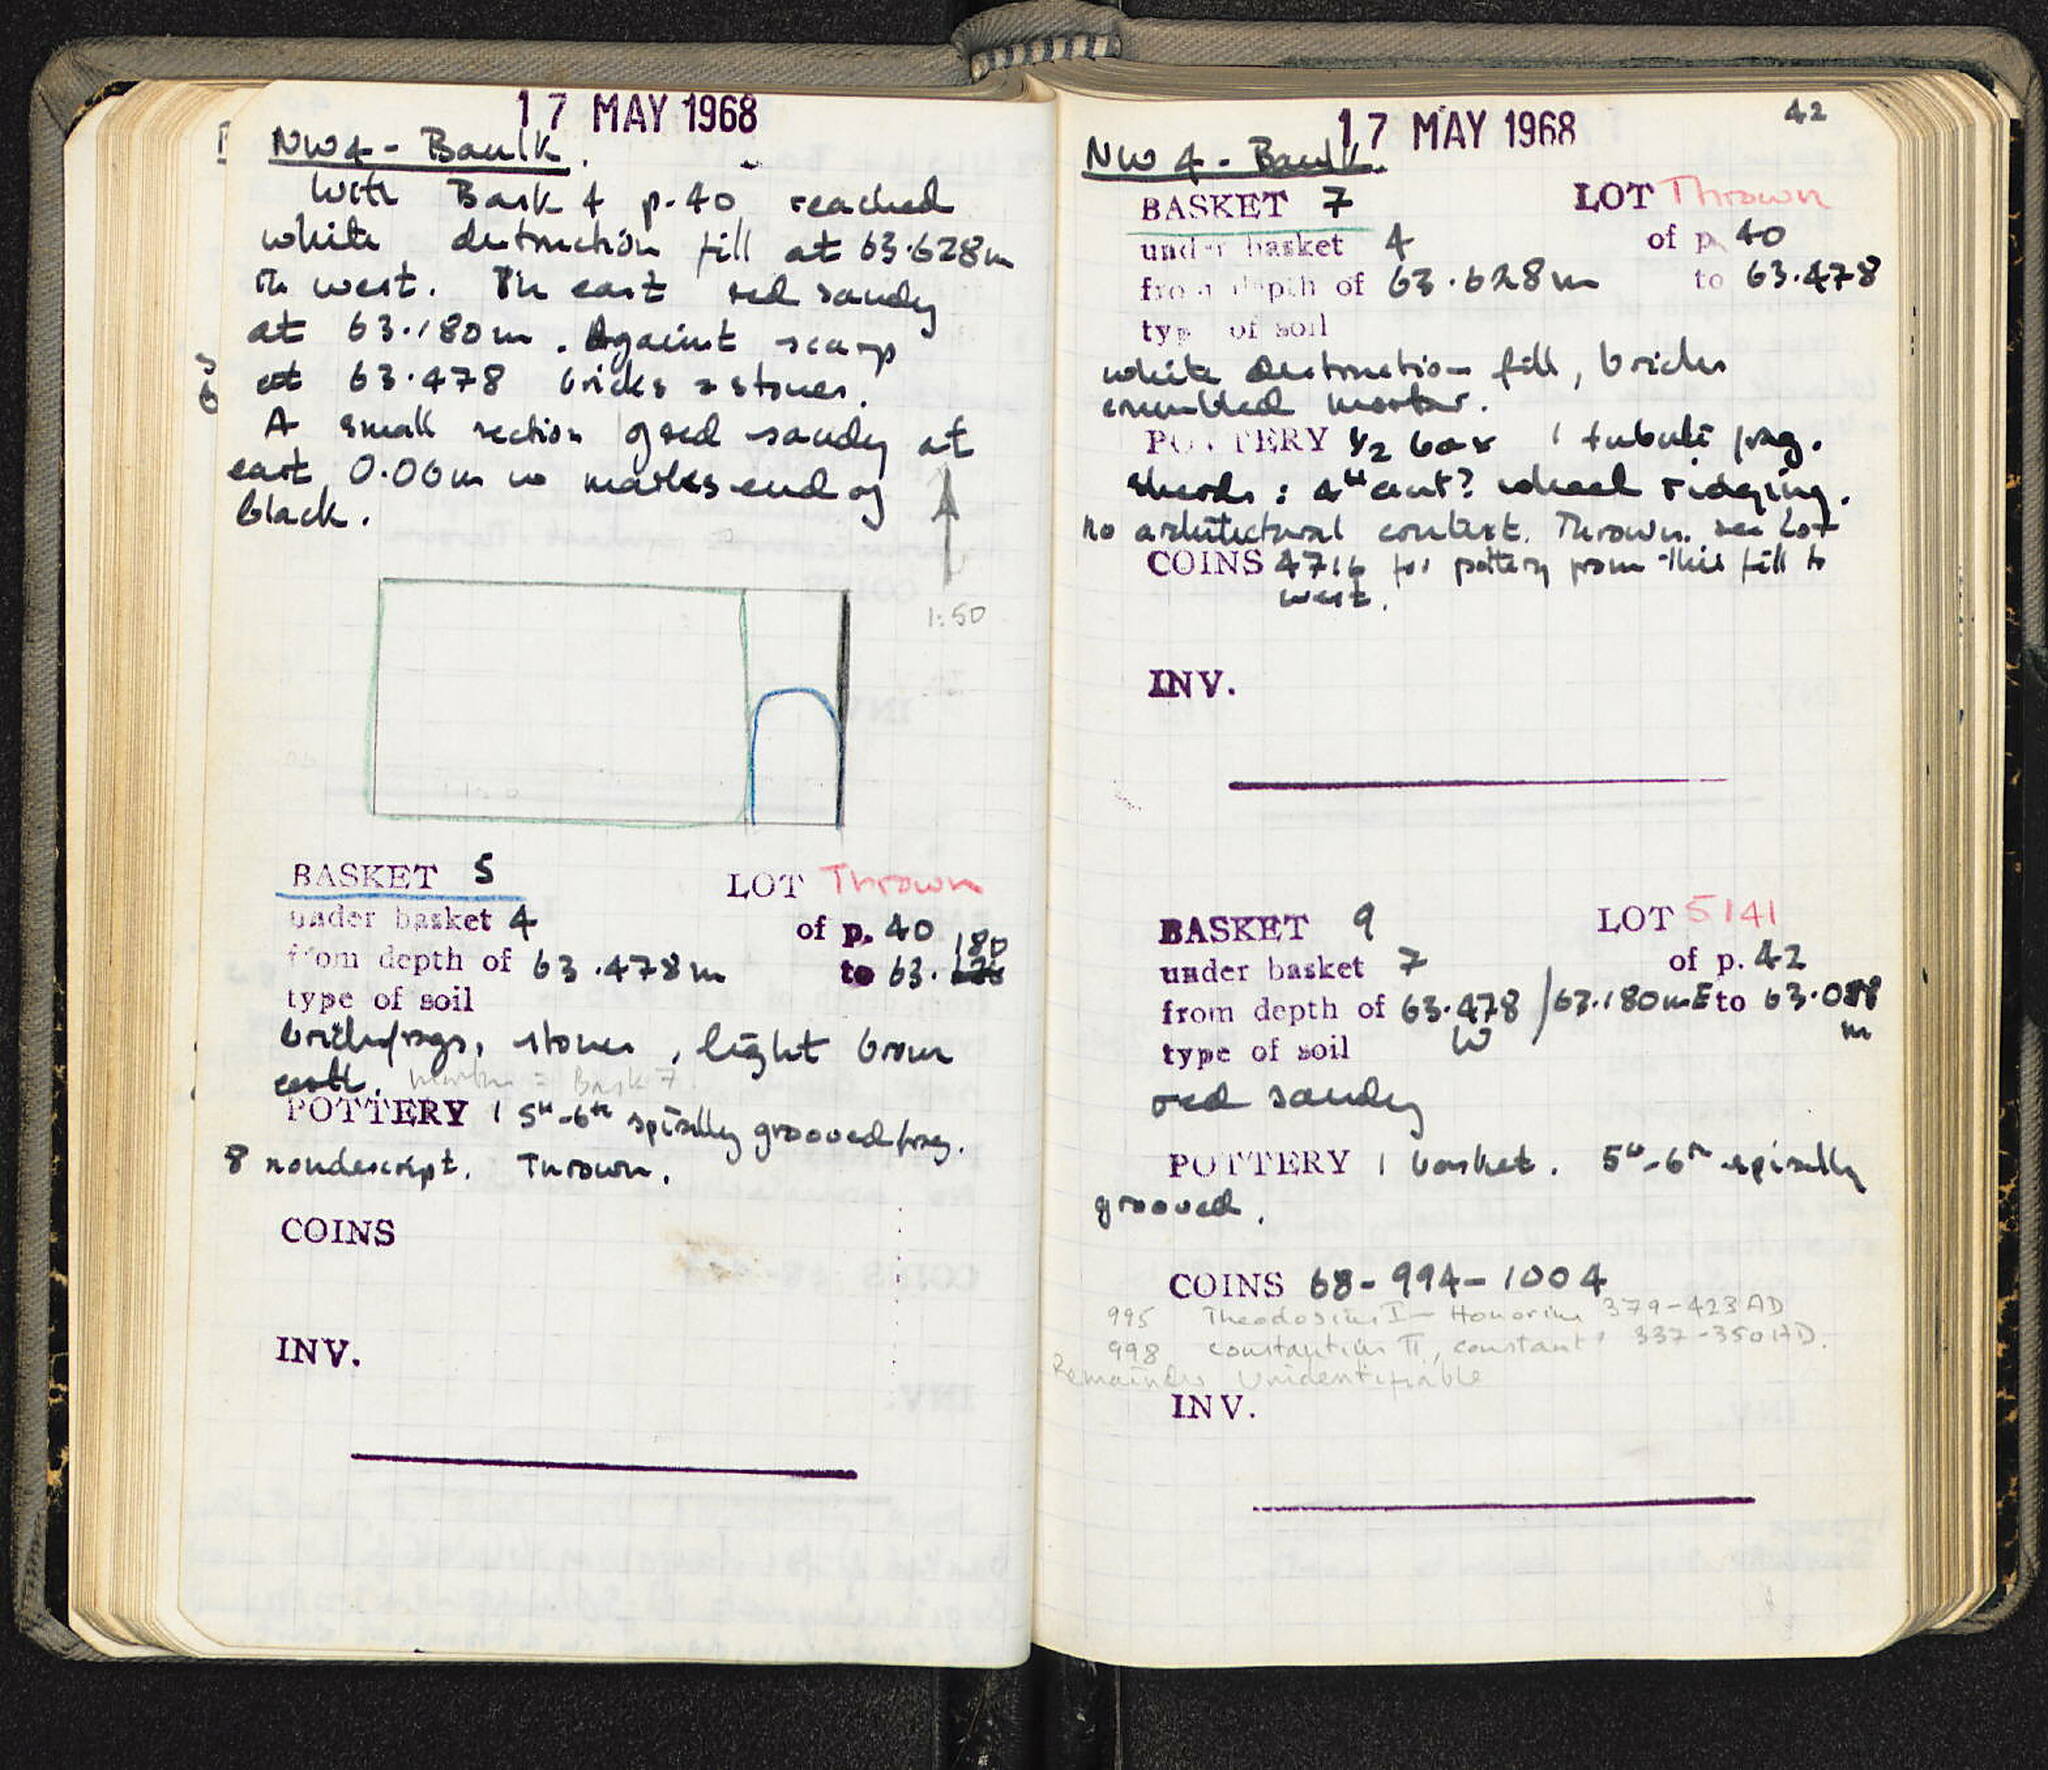 17 MAY 1968
NW4 - Baulk.
With Bask 4 p.40 reached
white destruction fill at 63.628m
in west. In east red sandy
at 63.180m. Against scarp
at 63.478 bricks & stones.
A small section of red sandy at
east 0.06m w marks end of
black.
1:50
BASKET 5 LOT Thrown
under basket 4 of p. 40
from depth of 63.478m to 63.180
type of soil
brickfrags, stones, light brown
earth. = Bask 7.
POTTERY 1 5th-6th spirally grooved frag.
8 nondescript. Thrown.
COINS
INV.
17 MAY 1968
42
NW 4 - Baulk.
BASKET 7 LOT Thrown
under basket 4 of p. 40
from depth of 63.628m to 63.478
type of soil
white destruction fill, bricks
crumbled mortar.
POTTERY 1/2 box 1 tubuli frag.
sherds: 4th cent? wheel ridging.
no architectural context. Thrown. see Lot
COINS 4716 for pottery from this fill to
west.
INV.
BASKET 9 LOT 5141
under basket 7 of p. 42
from depth of 63.478 W / 63.180m E to 63.088 m
type of soil
red sandy
POTTERY 1 basket. 5th-6th spirally
grooved.
COINS 68-994-1004
995 Theodosius I - Honorius 379-423 AD
998 Constantius II, Constans 337-350 AD.
Remainder Unidentifiable
INV.